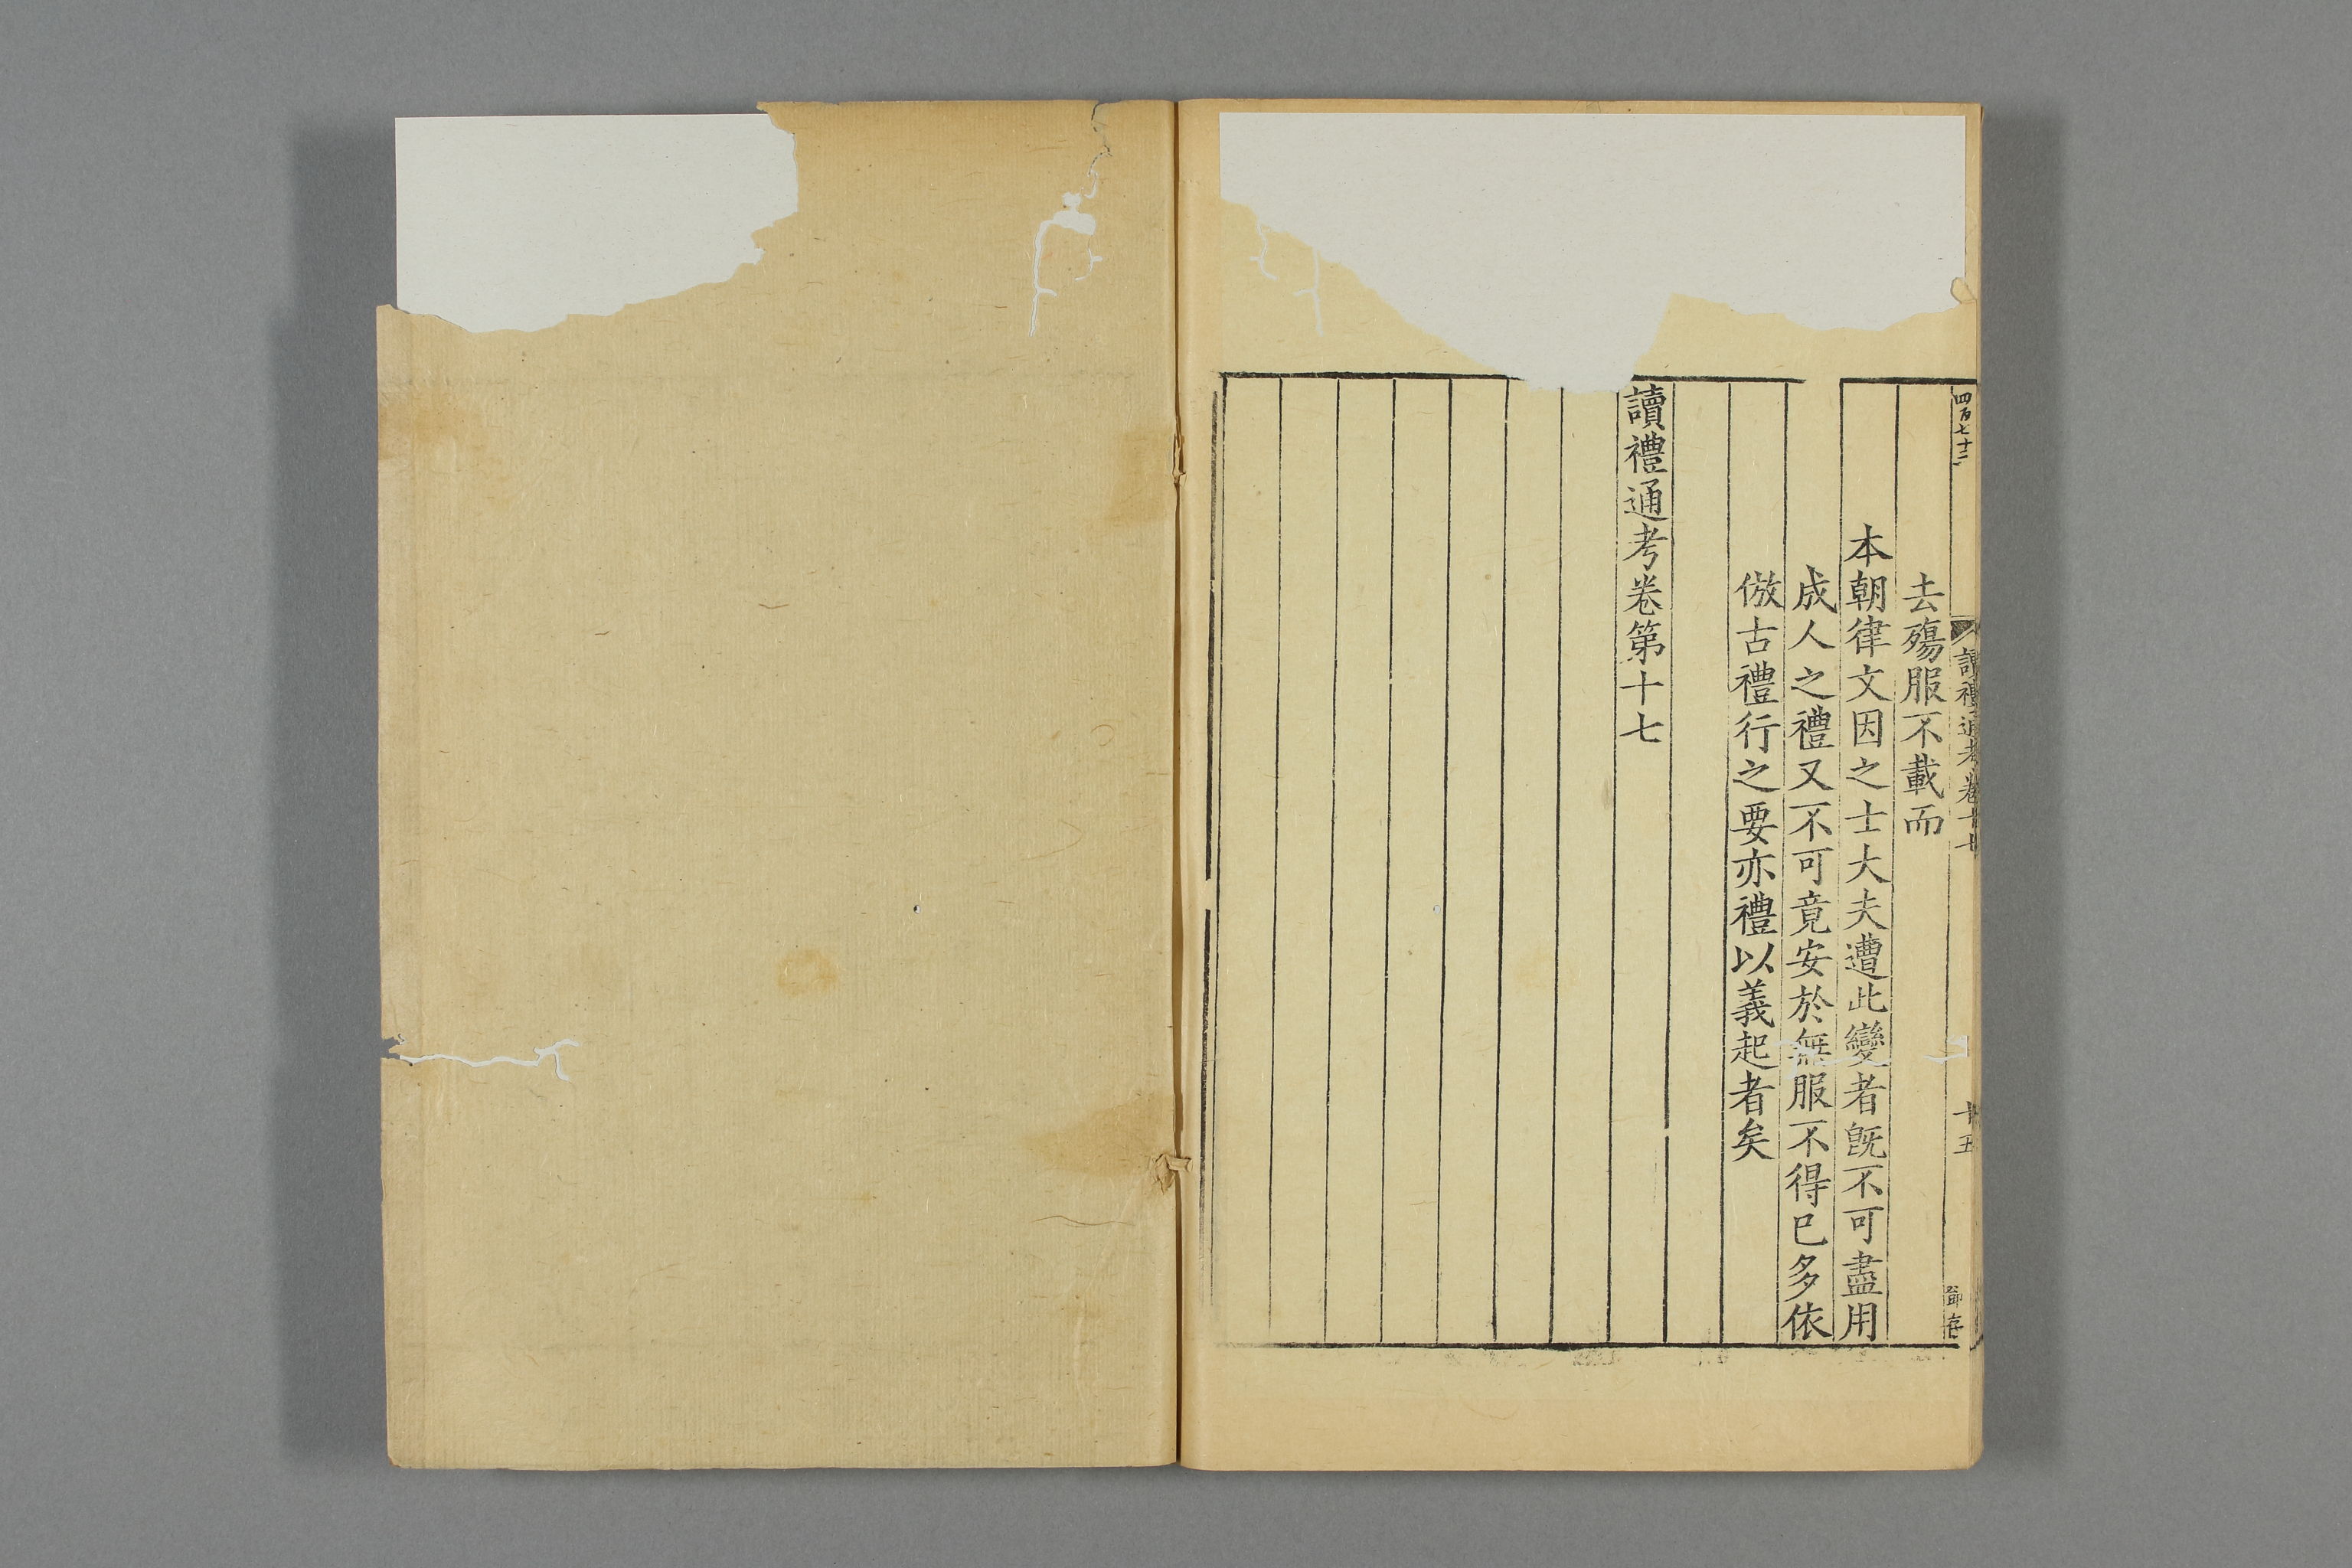 四百七十二
讀禮通考卷十七
十五
去殤服不載而
本朝律文因之士大夫遭此變者旣不可盡用
成人之禮又不可竟安於無服不得已多依
倣古禮行之要亦禮以義起者矣
讀禮通考卷第十七